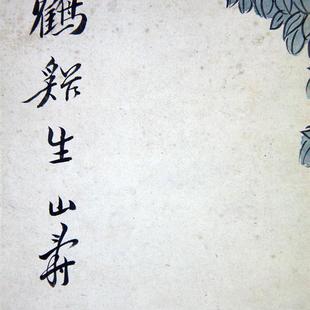 鶴谿生山寿